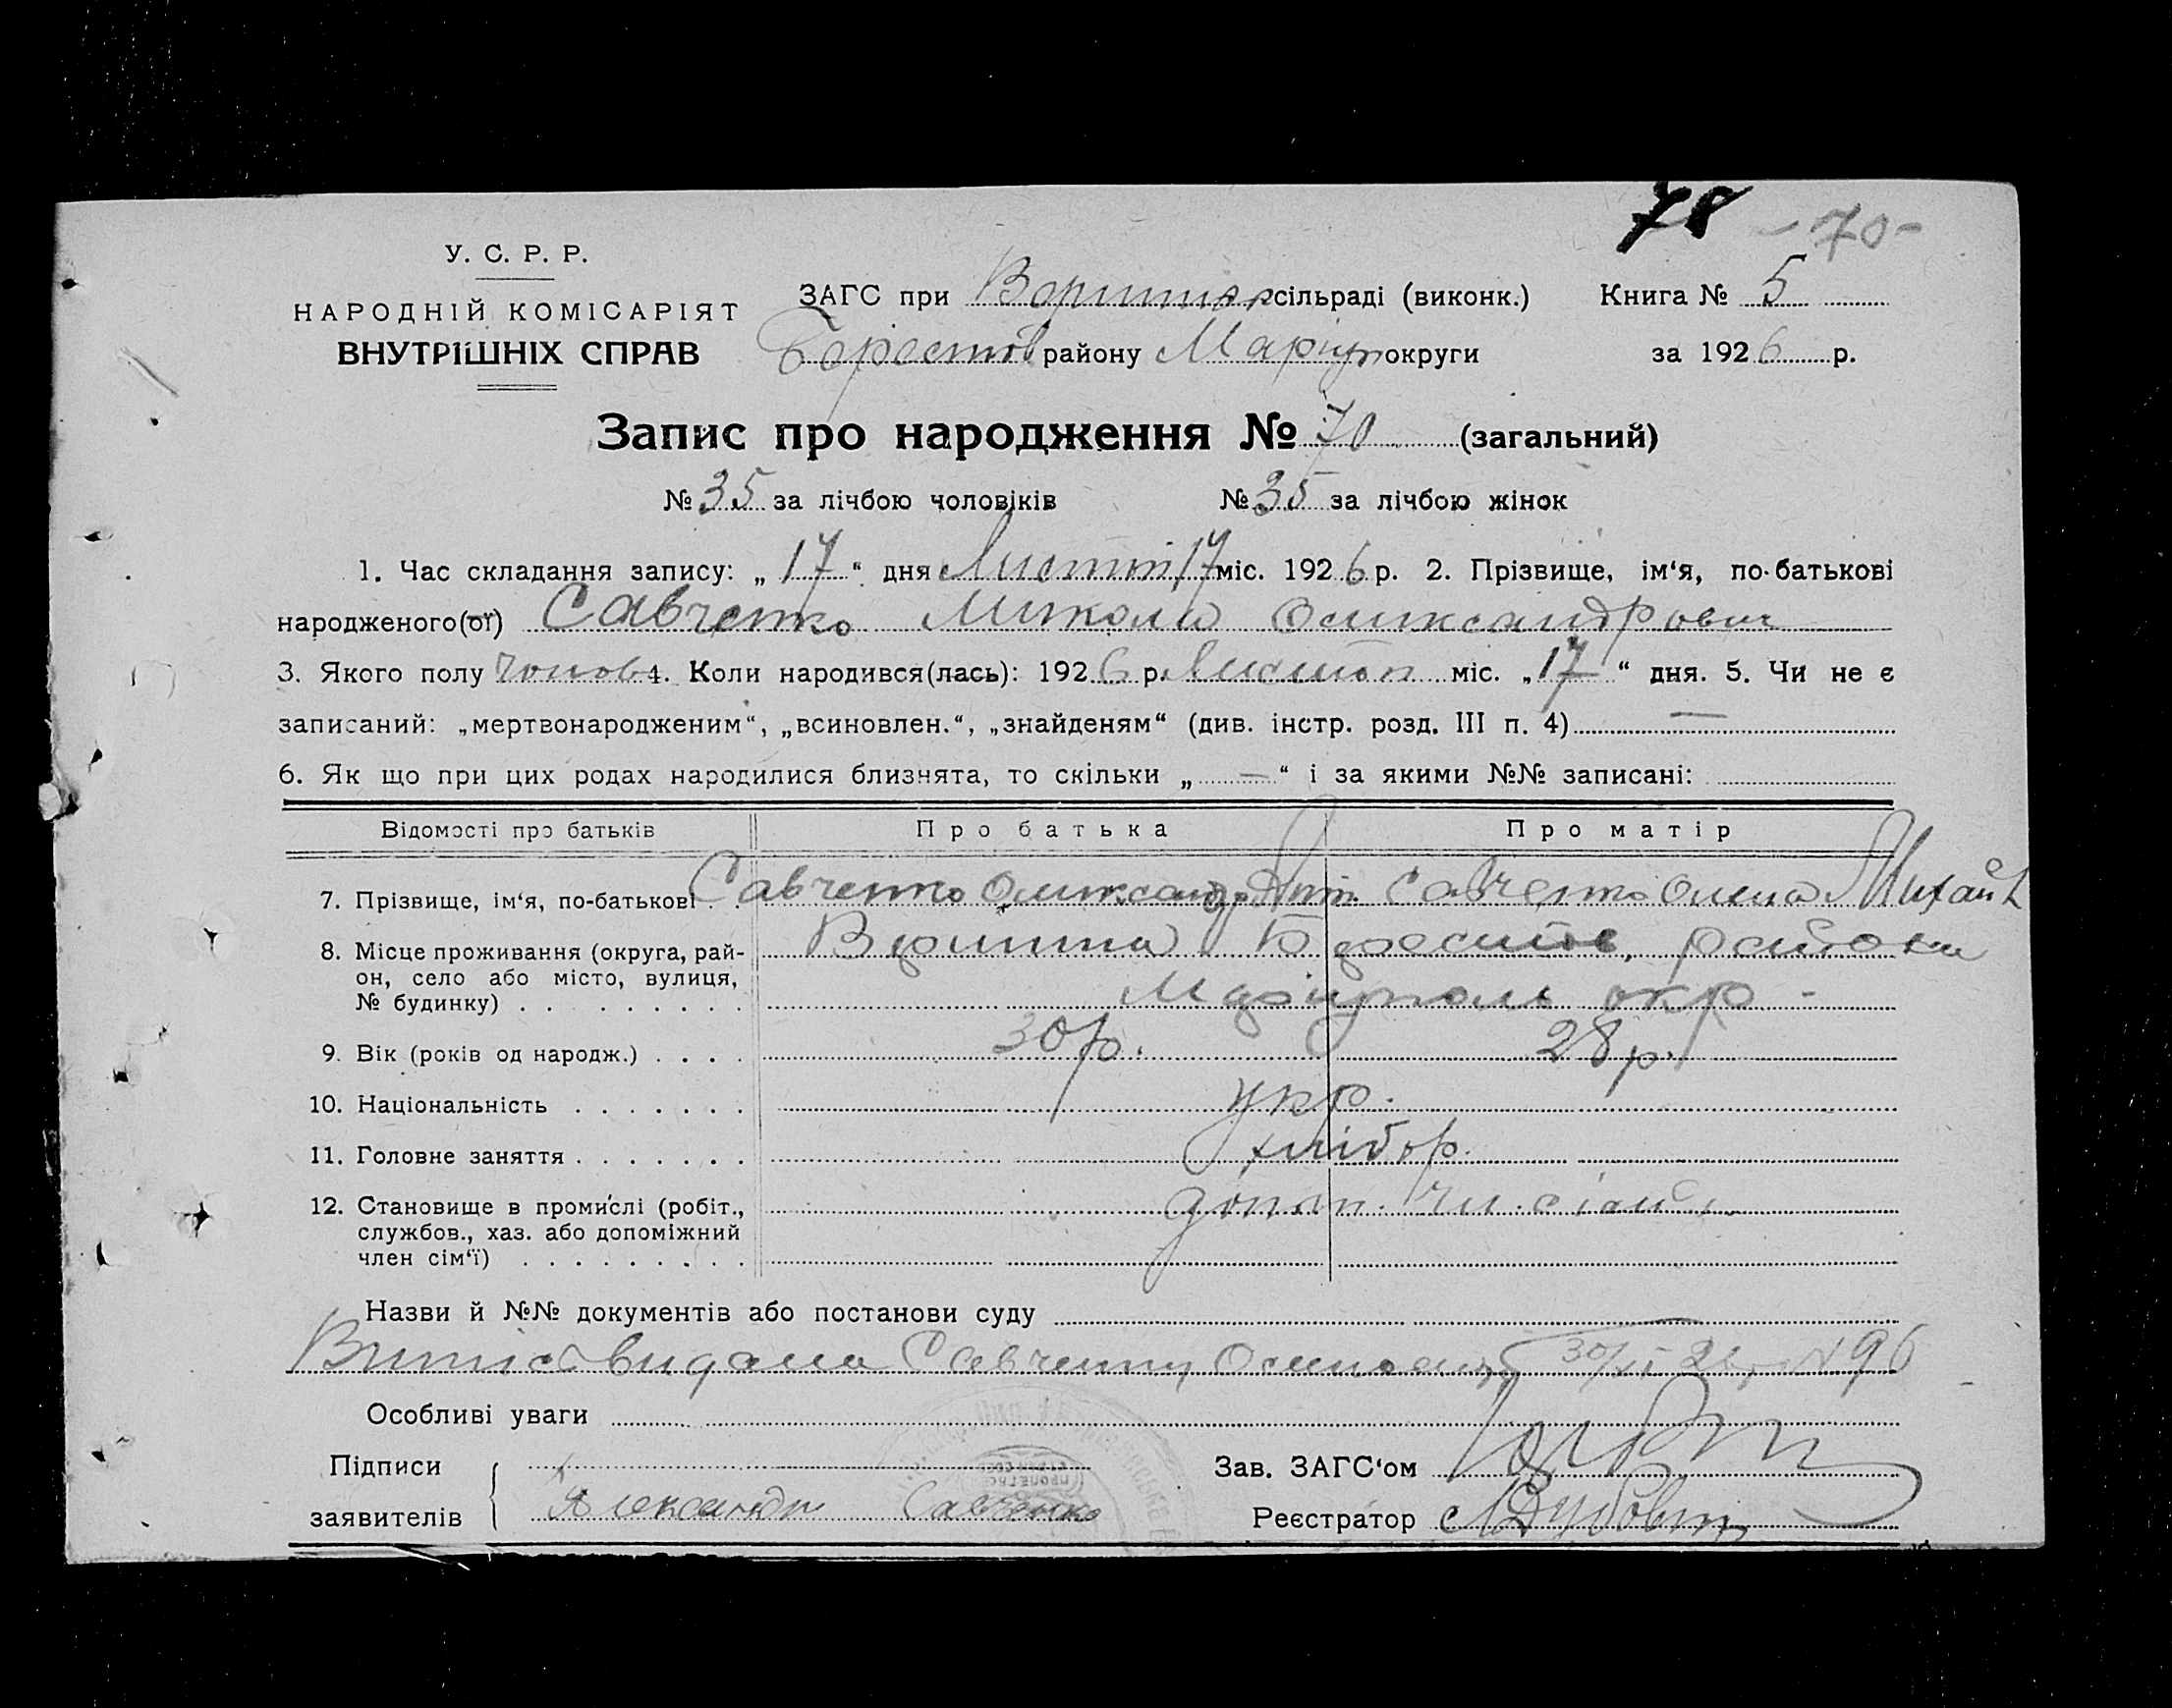 78 -70-
У. С. Р. Р.
НАРОДНІЙ КОМІСАРІЯТ
ВНУТРІШНІХ СПРАВ
ЗАГС при сільраді (виконк.) Книга № 5
Берестов району Маріуп округи за 1926 р.
Запис про народження № 70 (загальний)
№ 35 за лічбою чоловіків № 35 за лічбою жінок
1. Час складання запису: „ 17 “ дня міс. 1926 р. 2. Прізвище, ім‘я, по-батькові
народженого(ої) Савченко Микола Олександрович
3. Якого полу чолов 4. Коли народився(лась): 1926 р. Листоп міс. „ 17 “ дня. 5. Чи не є
записаний: „мертвонародженим“, „всиновлен.“, „знайденям“ (див. інстр. розд. III п. 4) —
6. Як що при цих родах народилися близнята, то скільки „ — “ і за якими №№ записані:
Відомості про батьків Про батька Про матір
7. Прізвище, ім‘я, по-батькові . . Савченко Олександр Савченко Олена Михайл
8. Місце проживання (округа, рай-
он, село або місто, вулиця,
№ будинку) . . . . . . . . .
Берестов. району
Маріуполь окр.
9. Вік (років од народж.) . . . . 30 р. 28 р.
10. Національність . . . . . . . укр.
11. Головне заняття . . . . . . . хлібор.
12. Становище в промислі (робіт.,
службов., хаз. або допоміжний
член сім‘ї) . . . . . . . . .
допом. чл. сімї
Назви й №№ документів або постанови суду
Витяг видана Савченку 30/XI 26 р N 96
Особливі уваги
Підписи Зав. ЗАГС‘ом
заявителів Александр Савченко Реєстратор